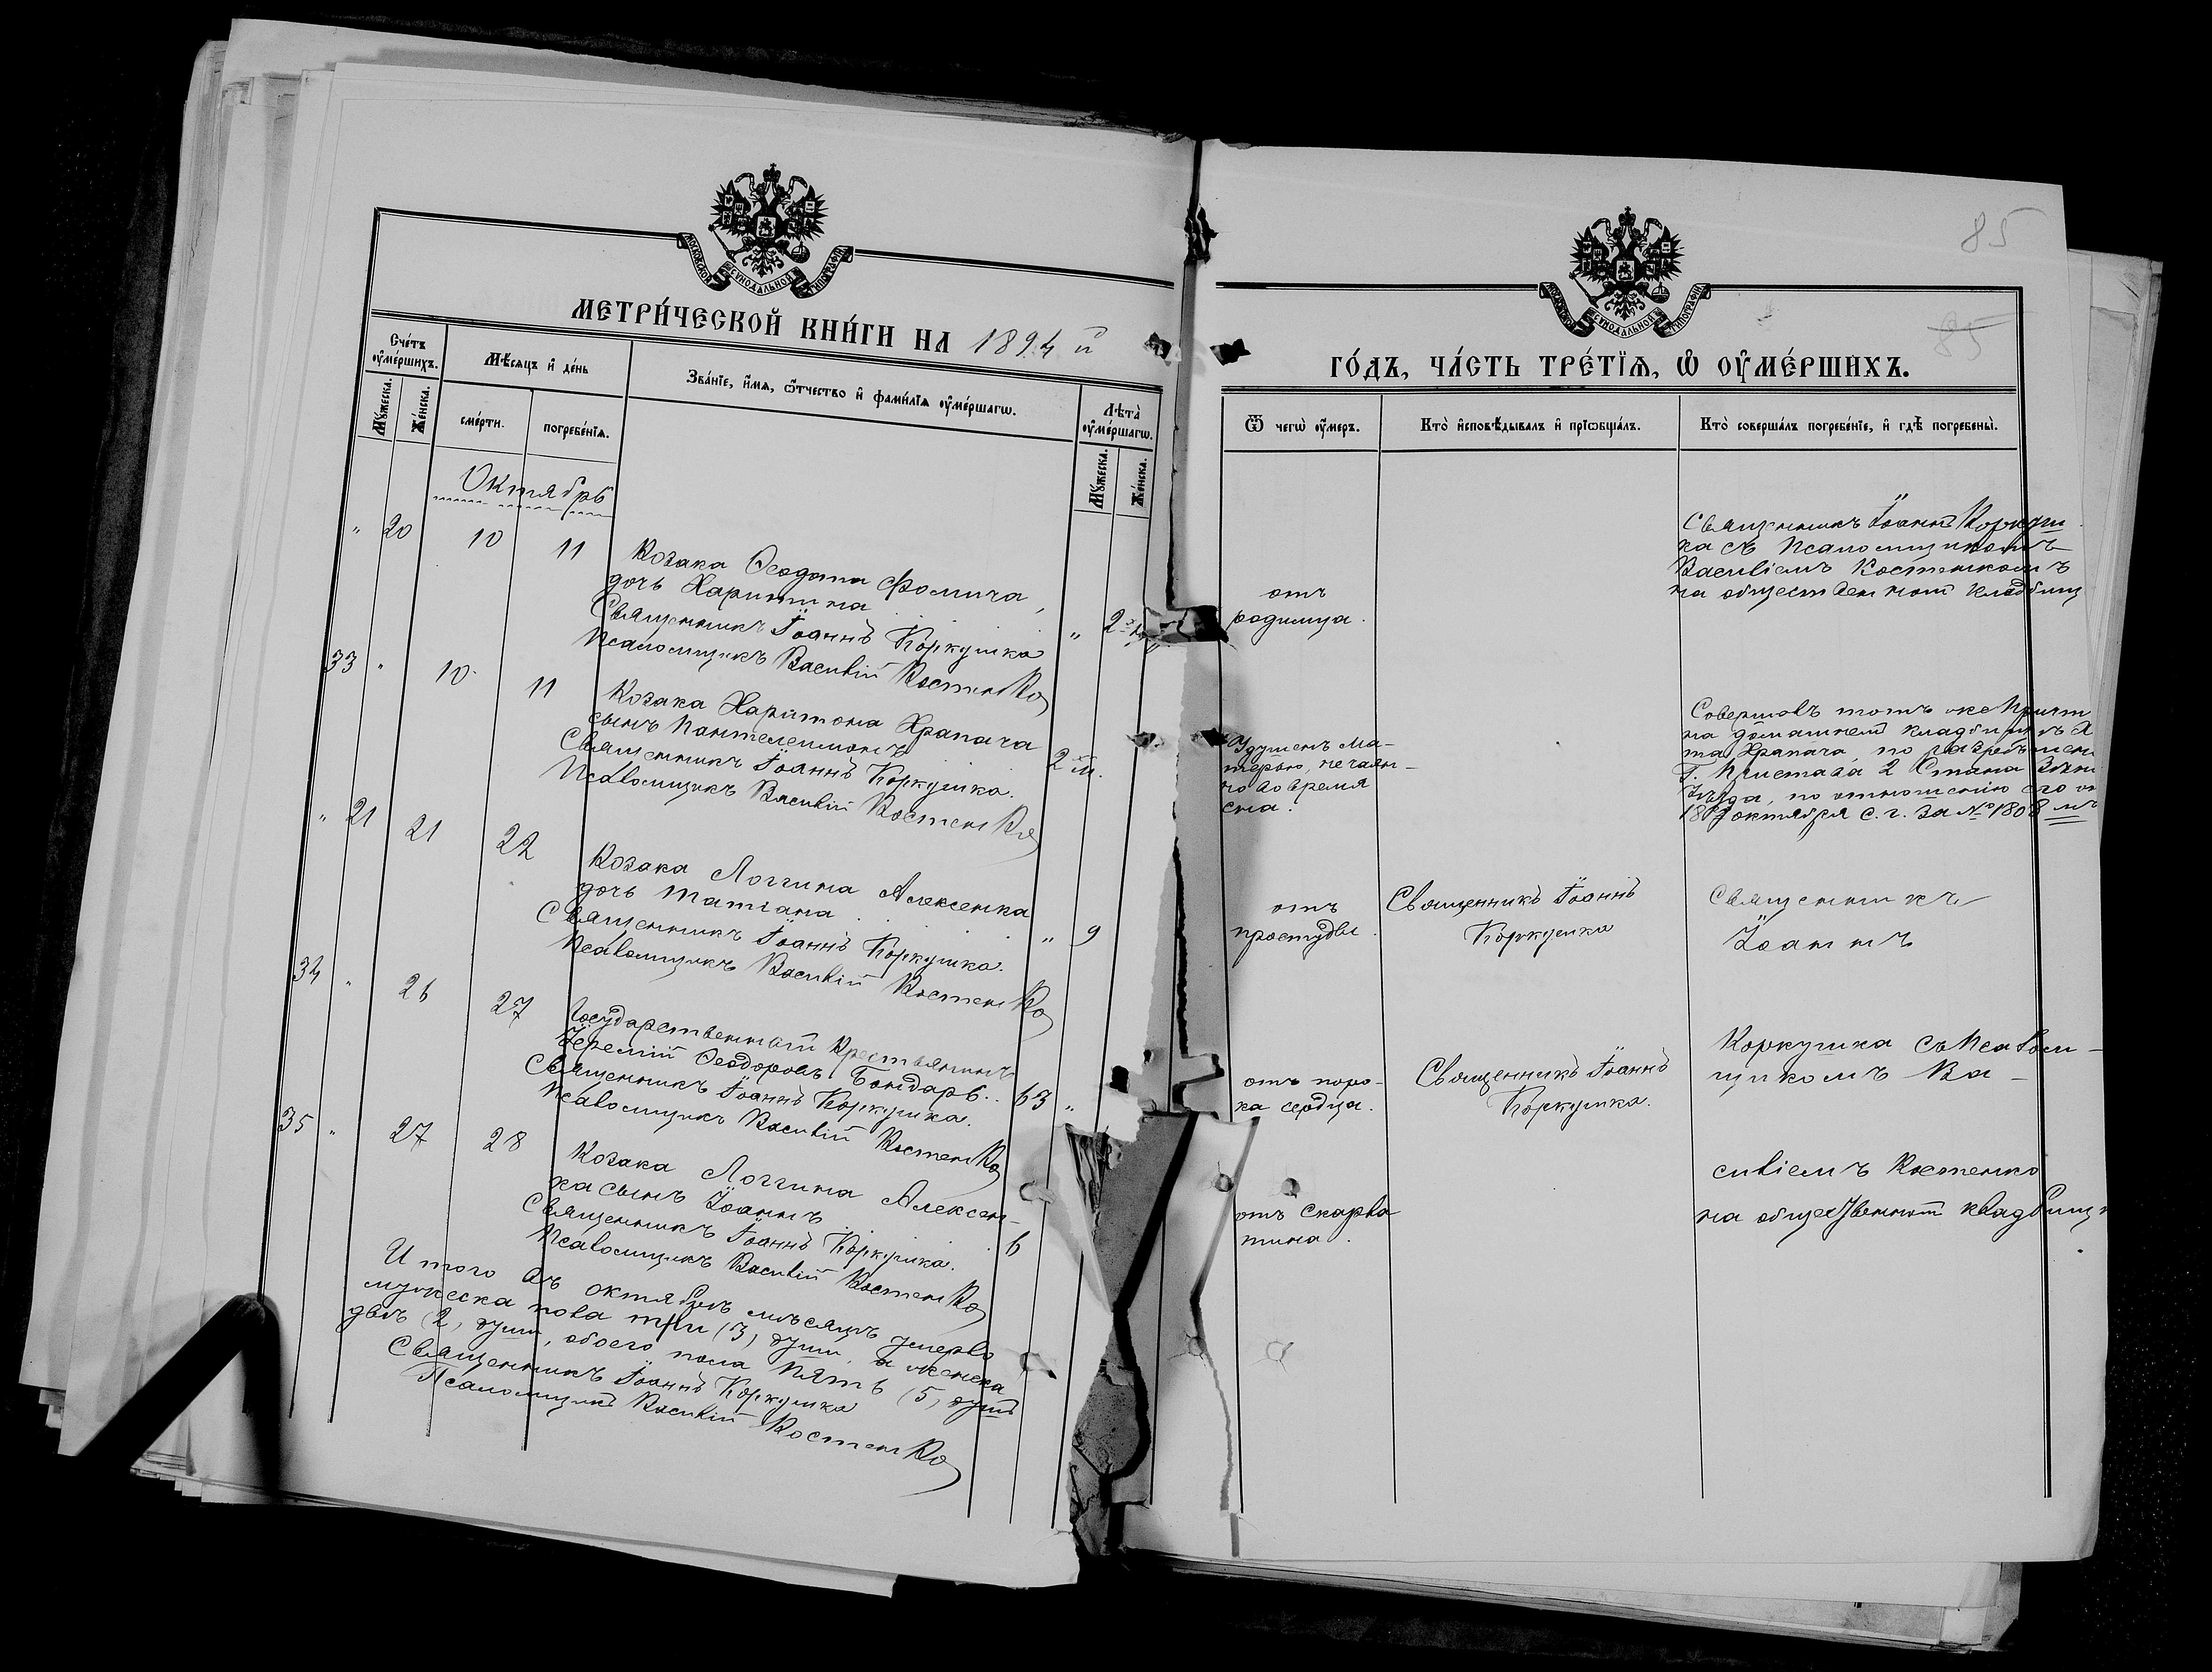 МОСКОВСКОЙ СѴНОДАЛЬНОЙ ТИПОГРАФІИ
МЕТРИ́ЧЕСКОЙ КНИ́ГИ НА 1894 й
Сче́тъ оу҆ме́ршихъ.
Мꙋ́жеска.
Же́нска.
Мѣ́сѧцъ и҆ де́нь
сме́рти.
погребе́нїѧ.
Зва́нїе, и҆́мѧ, ѻ҆́тчество и҆ фами́лїѧ оу҆ме́ршагѡ.
Лѣ́та оу҆ме́ршагѡ.
Мꙋ́жеска.
Же́нска.
Октябрь
" 20 10 11 Козака Ѳеодота Фомича,
дочь Харитина
Священникъ Іоаннъ Коркушка " 2
Псаломщикъ Василій Костенко
33 " 10 11 Козака Харитона Храпача
сынъ Пантелеимонъ
Священникъ Іоаннъ Коркушка. 2 м.
Псаломщикъ Василій Костенко
" 21 21 22 Козака Логгина Алексенка
дочь Татіана . " 9
Священникъ Іоаннъ Коркушка.
Псаломщикъ Василій Костенко
34 " 26 27 Государственный Крестьянинъ
Іеремій Ѳеодоровъ Бондарь.. 63 "
Священникъ Іоаннъ Коркушка.
Псаломщикъ Василій Костенко
35 " 27 28 Козака Логгина Алексен-
ка сынъ Іоаннъ 6
Священникъ Іоаннъ Коркушка.
Псаломщикъ Василій Костенко
Итого въ октябрѣ мѣсяцѣ умерло
мужеска пола три (3) души, а женска
двѣ (2) души, обоего пола пять (5) душъ
Священникъ Іоаннъ Коркушка
Псаломщикъ Василій Костенко
85
МОСКОВСКОЙ СѴНОДАЛЬНОЙ ТИПОГРАФІИ
85
ГО́ДЪ, ЧА́СТЬ ТРЕ́ТЇѦ, Ѡ҆ ОУ҆МЕ́РШИХЪ.
Ѿ чегѡ̀ оу҆́меръ.
Кто̀ и҆сповѣ́дывалъ и҆ прїѡбща́лъ.
Кто̀ соверша́лъ погребе́нїе, и҆ гдѣ̀ погребены̀.
отъ
родимца.
Священникъ Іоаннъ Коркуш
ка съ Псаломщикомъ
Василіемъ Костенкомъ
на общественномъ кладбищ
Удушенъ ма-
терью, нечаян-
но во время
сна.
Совершалъ тотъ же Причт
на домашнемъ кладбищѣ
та Храпача, по разрѣшен
Г. Пристава 2 Стана
уѣзда, по отношенію его от
октября с. г. за № 1808 мъ
отъ
простуды.
Священникъ Іоаннъ
Коркушка
Священникъ
Іоаннъ
отъ поро-
ка сердца.
Священникъ Іоаннъ
Коркушка.
Коркушка съ Псалом-
щикомъ Ва-
отъ скарла
тина.
силіемъ Костенко
на общественномъ кладбищ